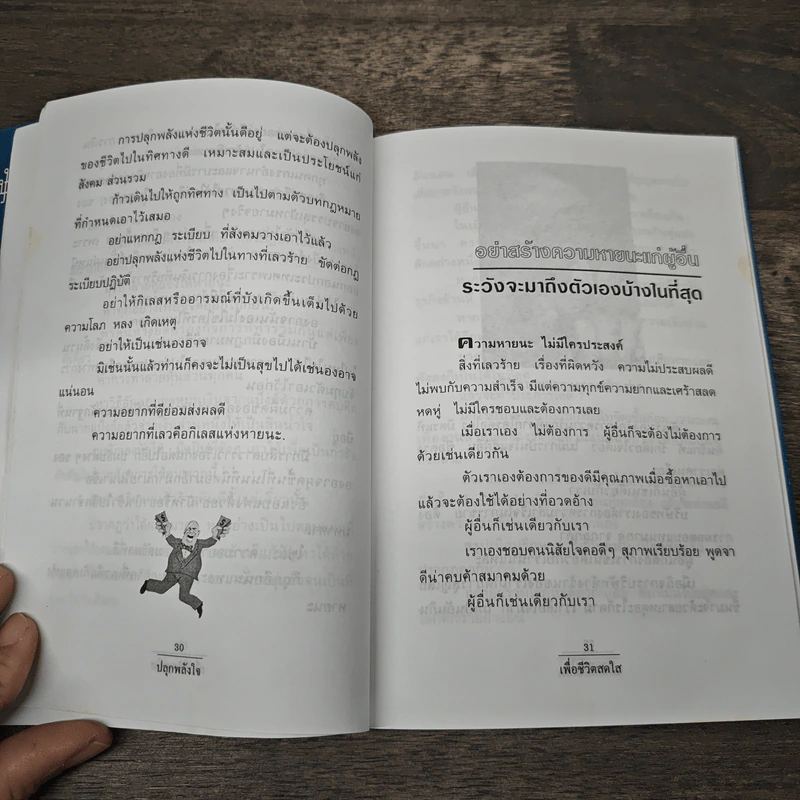 การปลุกพลังแห่งชีวิตนั้นดีอยู่ แต่จะต้องปลุกพลัง
ของชีวิตไปในทิศทางดี เหมาะสมและเป็นประโยชน์แก่
สังคม ส่วนรวม
ก้าวเดินไปให้ถูกทิศทาง เป็นไปตามตัวบทกฎหมาย
ที่กำหนดเอาไว้เสมอ
อย่าแหกกฎ ระเบียบ ที่สังคมวางเอาไว้แล้ว
อย่าปลุกพลังแห่งชีวิตไปในทางที่เลวร้าย ขัดต่อกฎ
ระเบียบปฏิบัติ
อย่าให้กิเลสหรืออารมณ์ที่บังเกิดขึ้นเต็มไปด้วย
ความโลภ หลง เกิดเหตุ
อย่าให้เป็นเช่นนองอาจ
มิเช่นนั้นแล้วท่านก็คงจะไม่เป็นสุขไปได้เช่นนองอาจ
แน่นอน
ความอยากที่ดีย่อมส่งผลดี
ความอยากที่เลวคือกิเลสแห่งหายนะ.
30
ปลุกพลังใจ
อย่าสร้างความหายนะแก่ผู้อื่น
ระวังจะมาถึงตัวเองบ้างในที่สุด
ความหายนะ ไม่มีใครประสงค์
สิ่งที่เลวร้าย เรื่องที่ผิดหวัง ความไม่ประสบผลดี
ไม่พบกับความสำเร็จ มีแต่ความทุกข์ความยากและเศร้าสลด
หดหู่ ไม่มีใครชอบและต้องการเลย
เมื่อเราเอง ไม่ต้องการ ผู้อื่นก็จะต้องไม่ต้องการ
ด้วยเช่นเดียวกัน
ตัวเราเองต้องการของดีมีคุณภาพเมื่อซื้อหาเอาไป
แล้วจะต้องใช้ได้อย่างที่อวดอ้าง
ผู้อื่นก็เช่นเดียวกับเรา
เราเองชอบคนนิสัยใจคอดีๆ สุภาพเรียบร้อย พูดจา
ดีน่าคบค้าสมาคมด้วย
ผู้อื่นก็เช่นเดียวกับเรา
31
เพื่อชีวิตสดใส